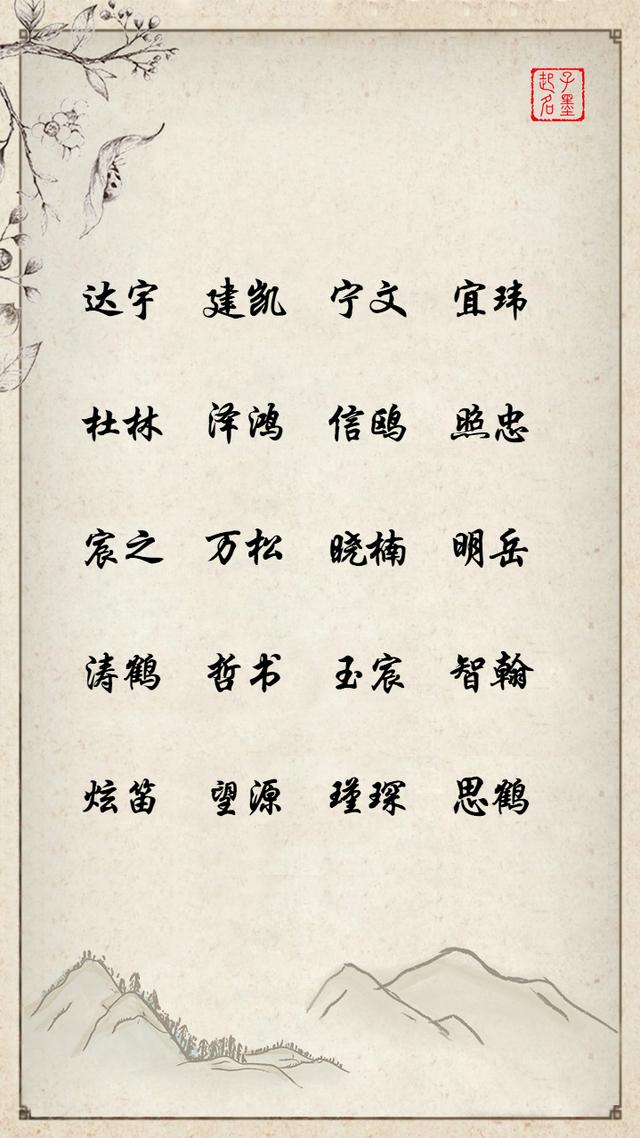 子墨
起名
达宇 建凯 宁文 宜玮
杜林 泽鸿 信鸥 照忠
宸之 万松 晓楠 明岳
涛鹤 哲书 玉宸 智翰
炫笛 望源 瑾琛 思鹤